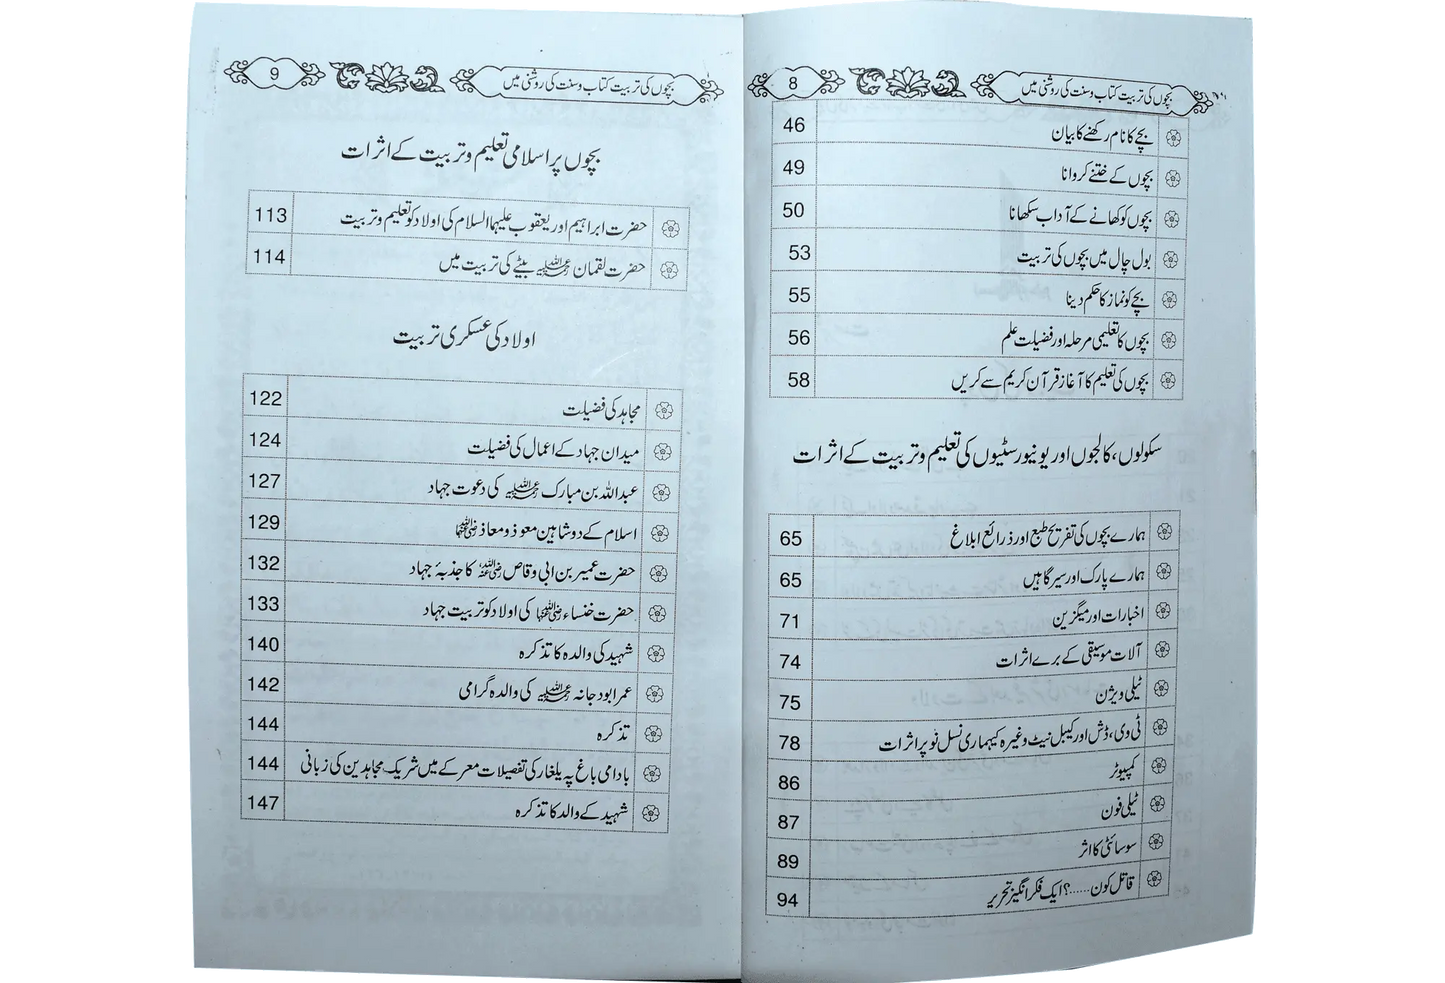 بچوں کی تربیت کتاب و سنت کی روشنی میں 8
بچے کا نام رکھنے کا بیان 46
بچوں کے ختنے کروانا 49
بچوں کو کھانے کے آداب سکھانا 50
بول چال میں بچوں کی تربیت 53
بچے کو نماز کا حکم دینا 55
بچوں کا تعلیمی مرحلہ اور فضیلت علم 56
بچوں کی تعلیم کا آغاز قرآن کریم سے کریں 58
سکولوں، کالجوں اور یونیورسٹیوں کی تعلیم و تربیت کے اثرات
ہمارے بچوں کی تفریح طبع اور ذرائع ابلاغ 65
ہمارے پارک اور سیر گاہیں 65
اخبارات اور میگزین 71
آلات موسیقی کے برے اثرات 74
ٹیلی ویژن 75
ٹی وی، ڈش اور کیبل نیٹ وغیرہ کیہماری نسل نو پر اثرات 78
کمپیوٹر 86
ٹیلی فون 87
سوسائٹی کا اثر 89
قاتل کون......؟ ایک فکر انگیز تحریر 94
بچوں کی تربیت کتاب و سنت کی روشنی میں 9
بچوں پر اسلامی تعلیم و تربیت کے اثرات
حضرت ابراہیم اور یعقوب علیہما السلام کی اولاد کو تعلیم و تربیت 113
حضرت لقمان رحمہ اللہ بیٹے کی تربیت میں 114
اولاد کی عسکری تربیت
مجاہد کی فضیلت 122
میدان جہاد کے اعمال کی فضیلت 124
عبداللہ بن مبارک رحمہ اللہ کی دعوت جہاد 127
اسلام کے دو شاہین معوذ و معاذ رضی اللہ عنہما 129
حضرت عمیر بن ابی وقاص رضی اللہ عنہ کا جذبۂ جہاد 132
حضرت خنساء رضی اللہ عنہا کی اولاد کو تربیت جہاد 133
شہید کی والدہ کا تذکرہ 140
عمر ابودجانہ رحمہ اللہ کی والدہ گرامی 142
تذکرہ 144
بادامی باغ پہ یلغار کی تفصیلات معرکے میں شریک مجاہدین کی زبانی 144
شہید کے والد کا تذکرہ 147